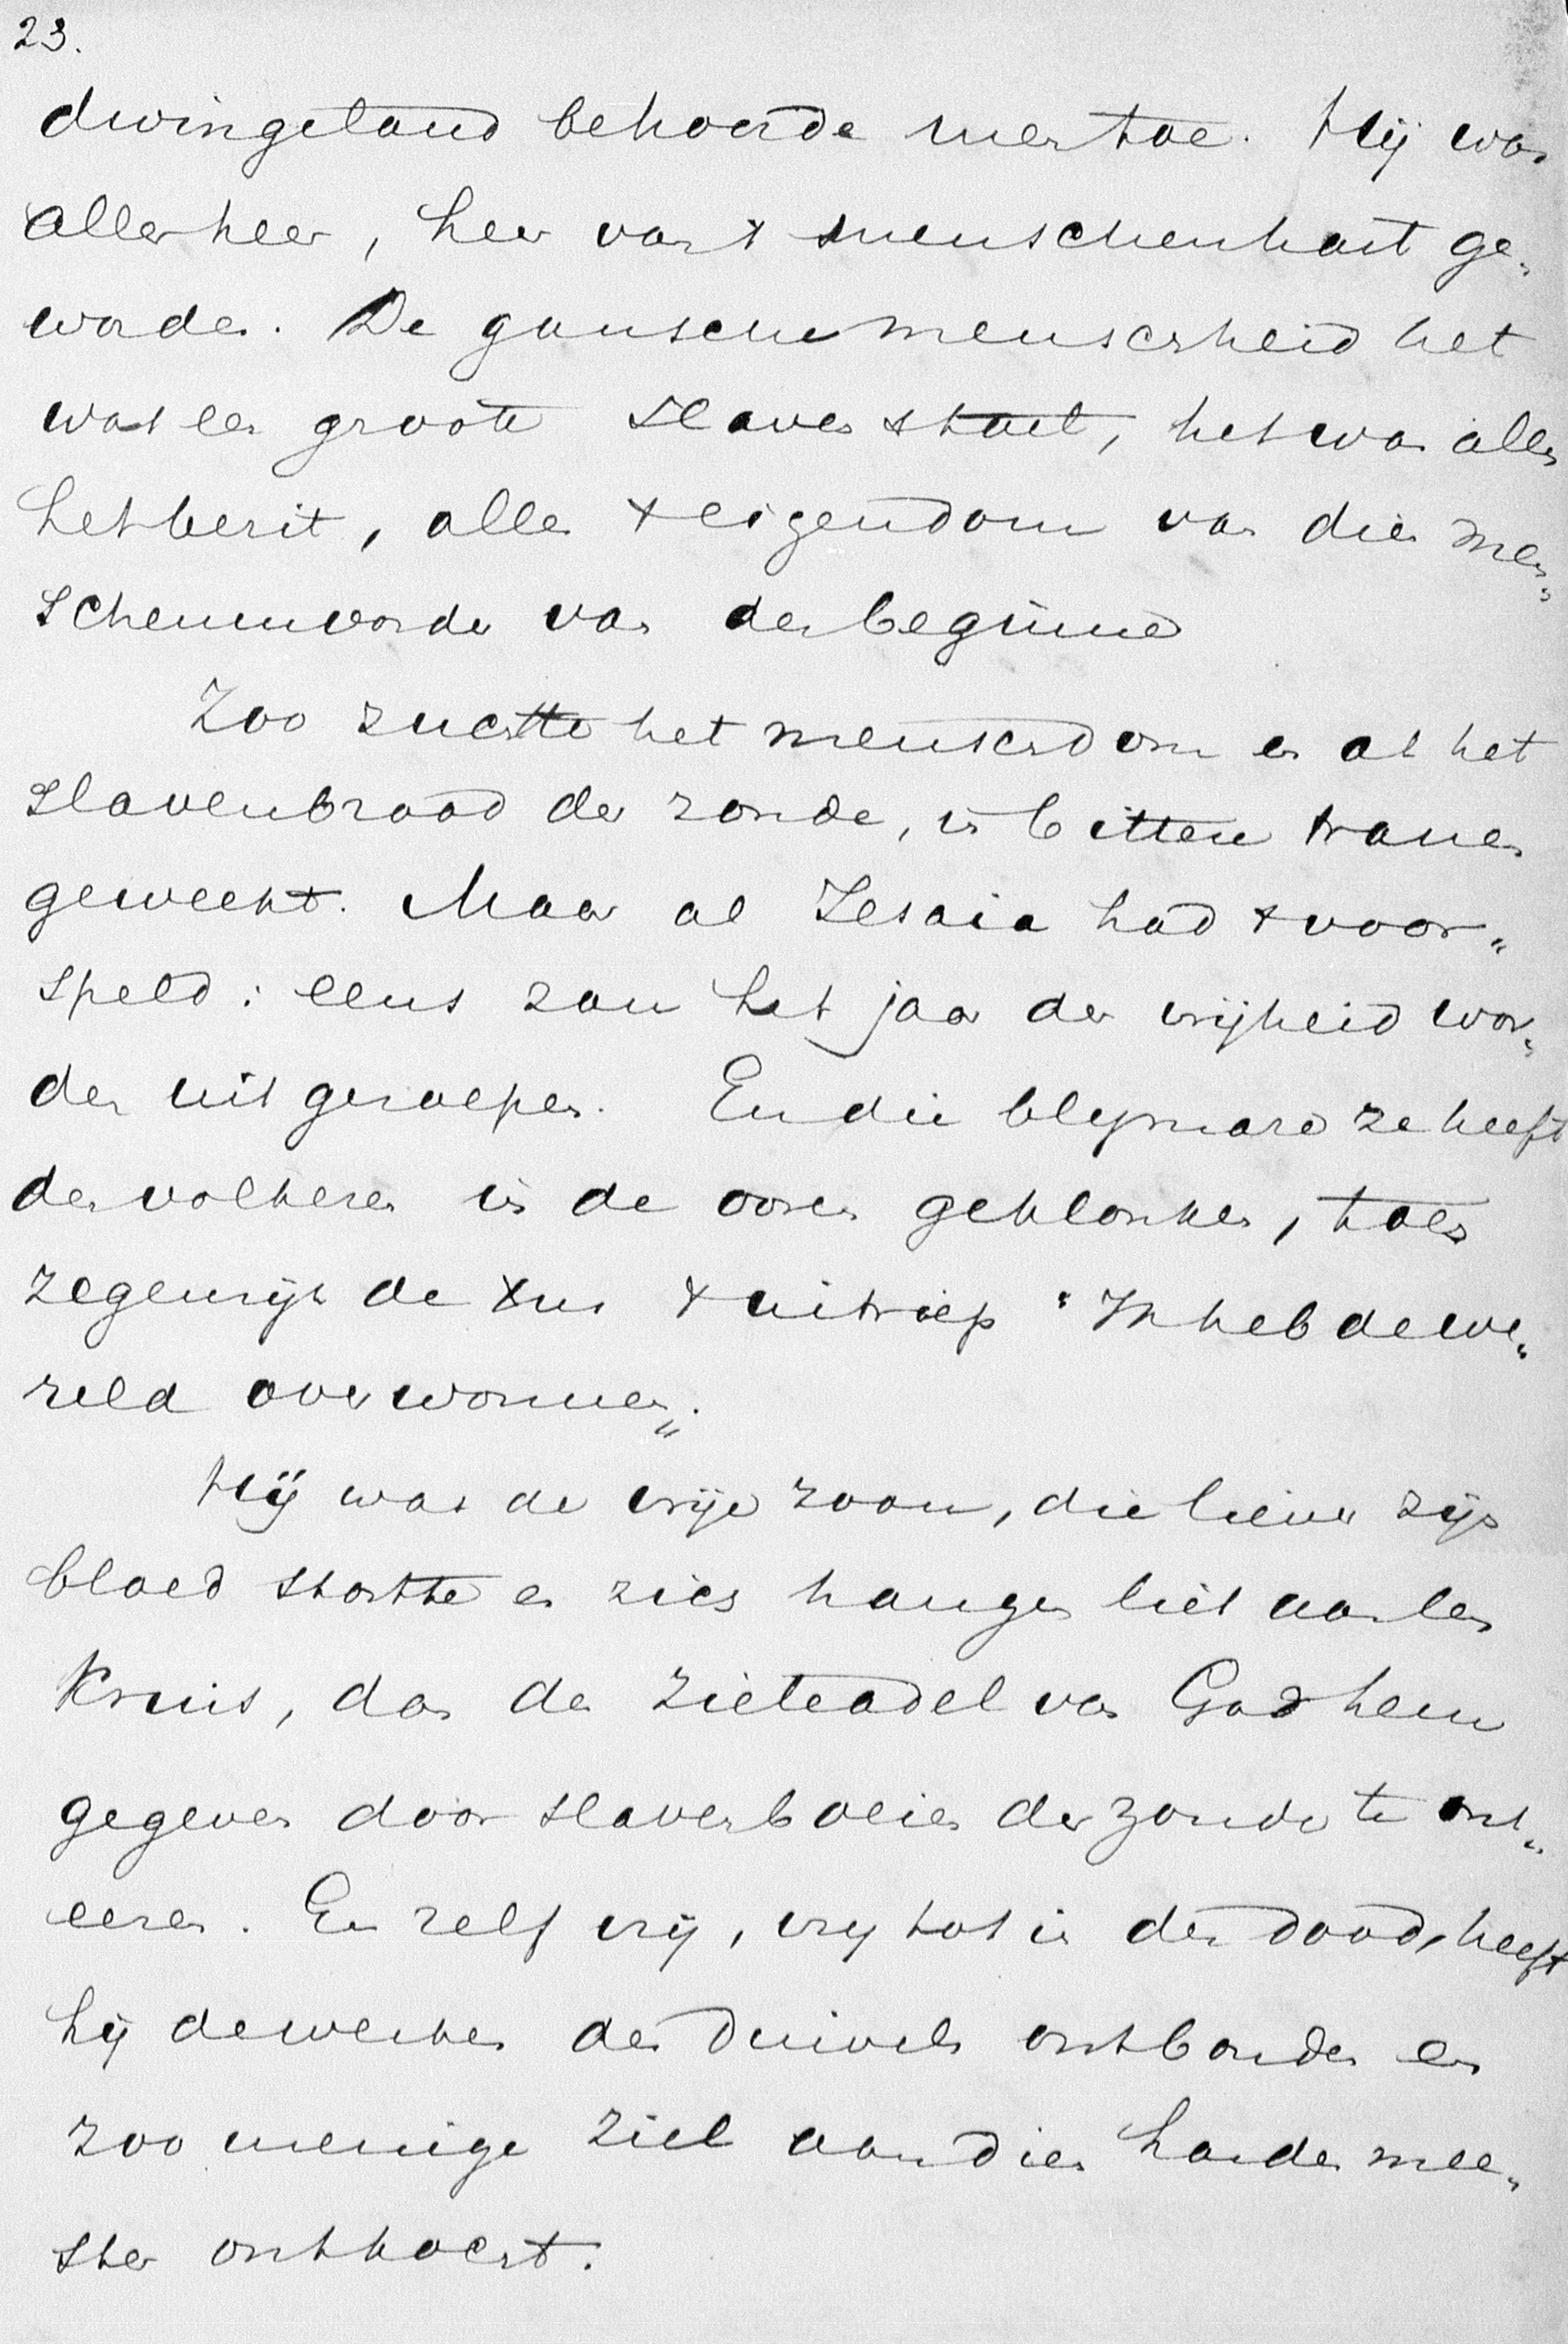 23.
dwingeland behoorde men toe. Hij was
aller heer, heer van 't menschenhart ge„
worden. De gansche menschheid het
was een groote slavenstoet, het was alles
het bezit, alles 't eigendom van dien men„
schenmoorder van den beginne
Zoo zuchtte het menschdom en at het
slavenbrood der zonde, in bittere tranen
geweekt. Maar al Jesaia had 't voor„
speld: eens zou het jaar der vrijheid wor„
den uitgeroepen. En die blijmare ze heeft
den volkeren in de ooren geklonken, toen
zegenrijk de Xus 't uitriep "Ik heb de we„
reld overwonnen„.
Hij was de vrije zoon, die liever zijn
bloed stortte en zich hangen liet aan een
Kruis, dan den zieleadel van God hem
gegeven door slavenboeien der zonde te ont„
eeren. En zelf vrij, vrij tot in den dood, heeft
hij de werken des Duivels ontbonden en
zoo menige ziel aan dien harden mee„
ster ontkocht.